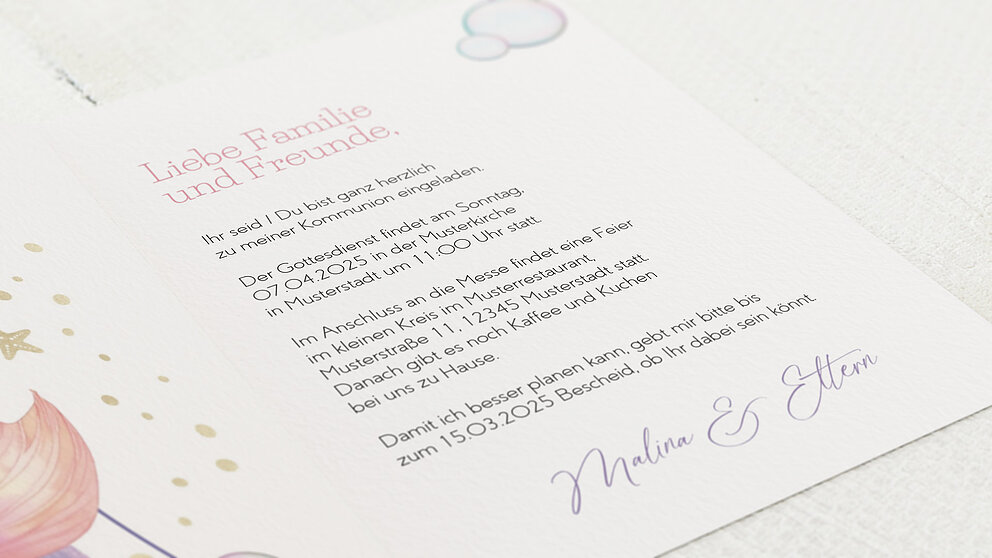 Liebe Familie
und Freunde,
Ihr seid / Du bist ganz herzlich
zu meiner Kommunion eingeladen.
Der Gottesdienst findet am Sonntag,
07.04.2025 in der Musterkirche
in Musterstadt um 11:00 Uhr statt.
Im Anschluss an die Messe findet eine Feier
im kleinen Kreis im Musterrestaurant,
Musterstraße 11, 12345 Musterstadt statt.
Danach gibt es noch Kaffee und Kuchen
bei uns zu Hause.
Damit ich besser planen kann, gebt mir bitte bis
zum 15.03.2025 Bescheid, ob Ihr dabei sein könnt.
Malina & Eltern